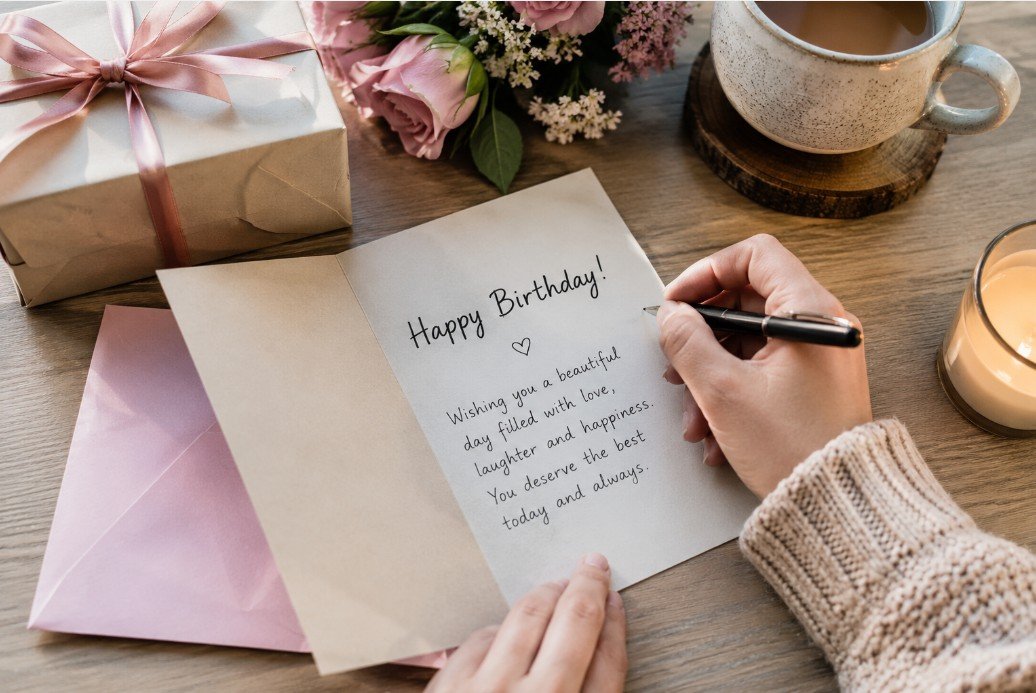 Happy Birthday!
♡
Wishing you a beautiful
day filled with love,
laughter and happiness.
You deserve the best
today and always.